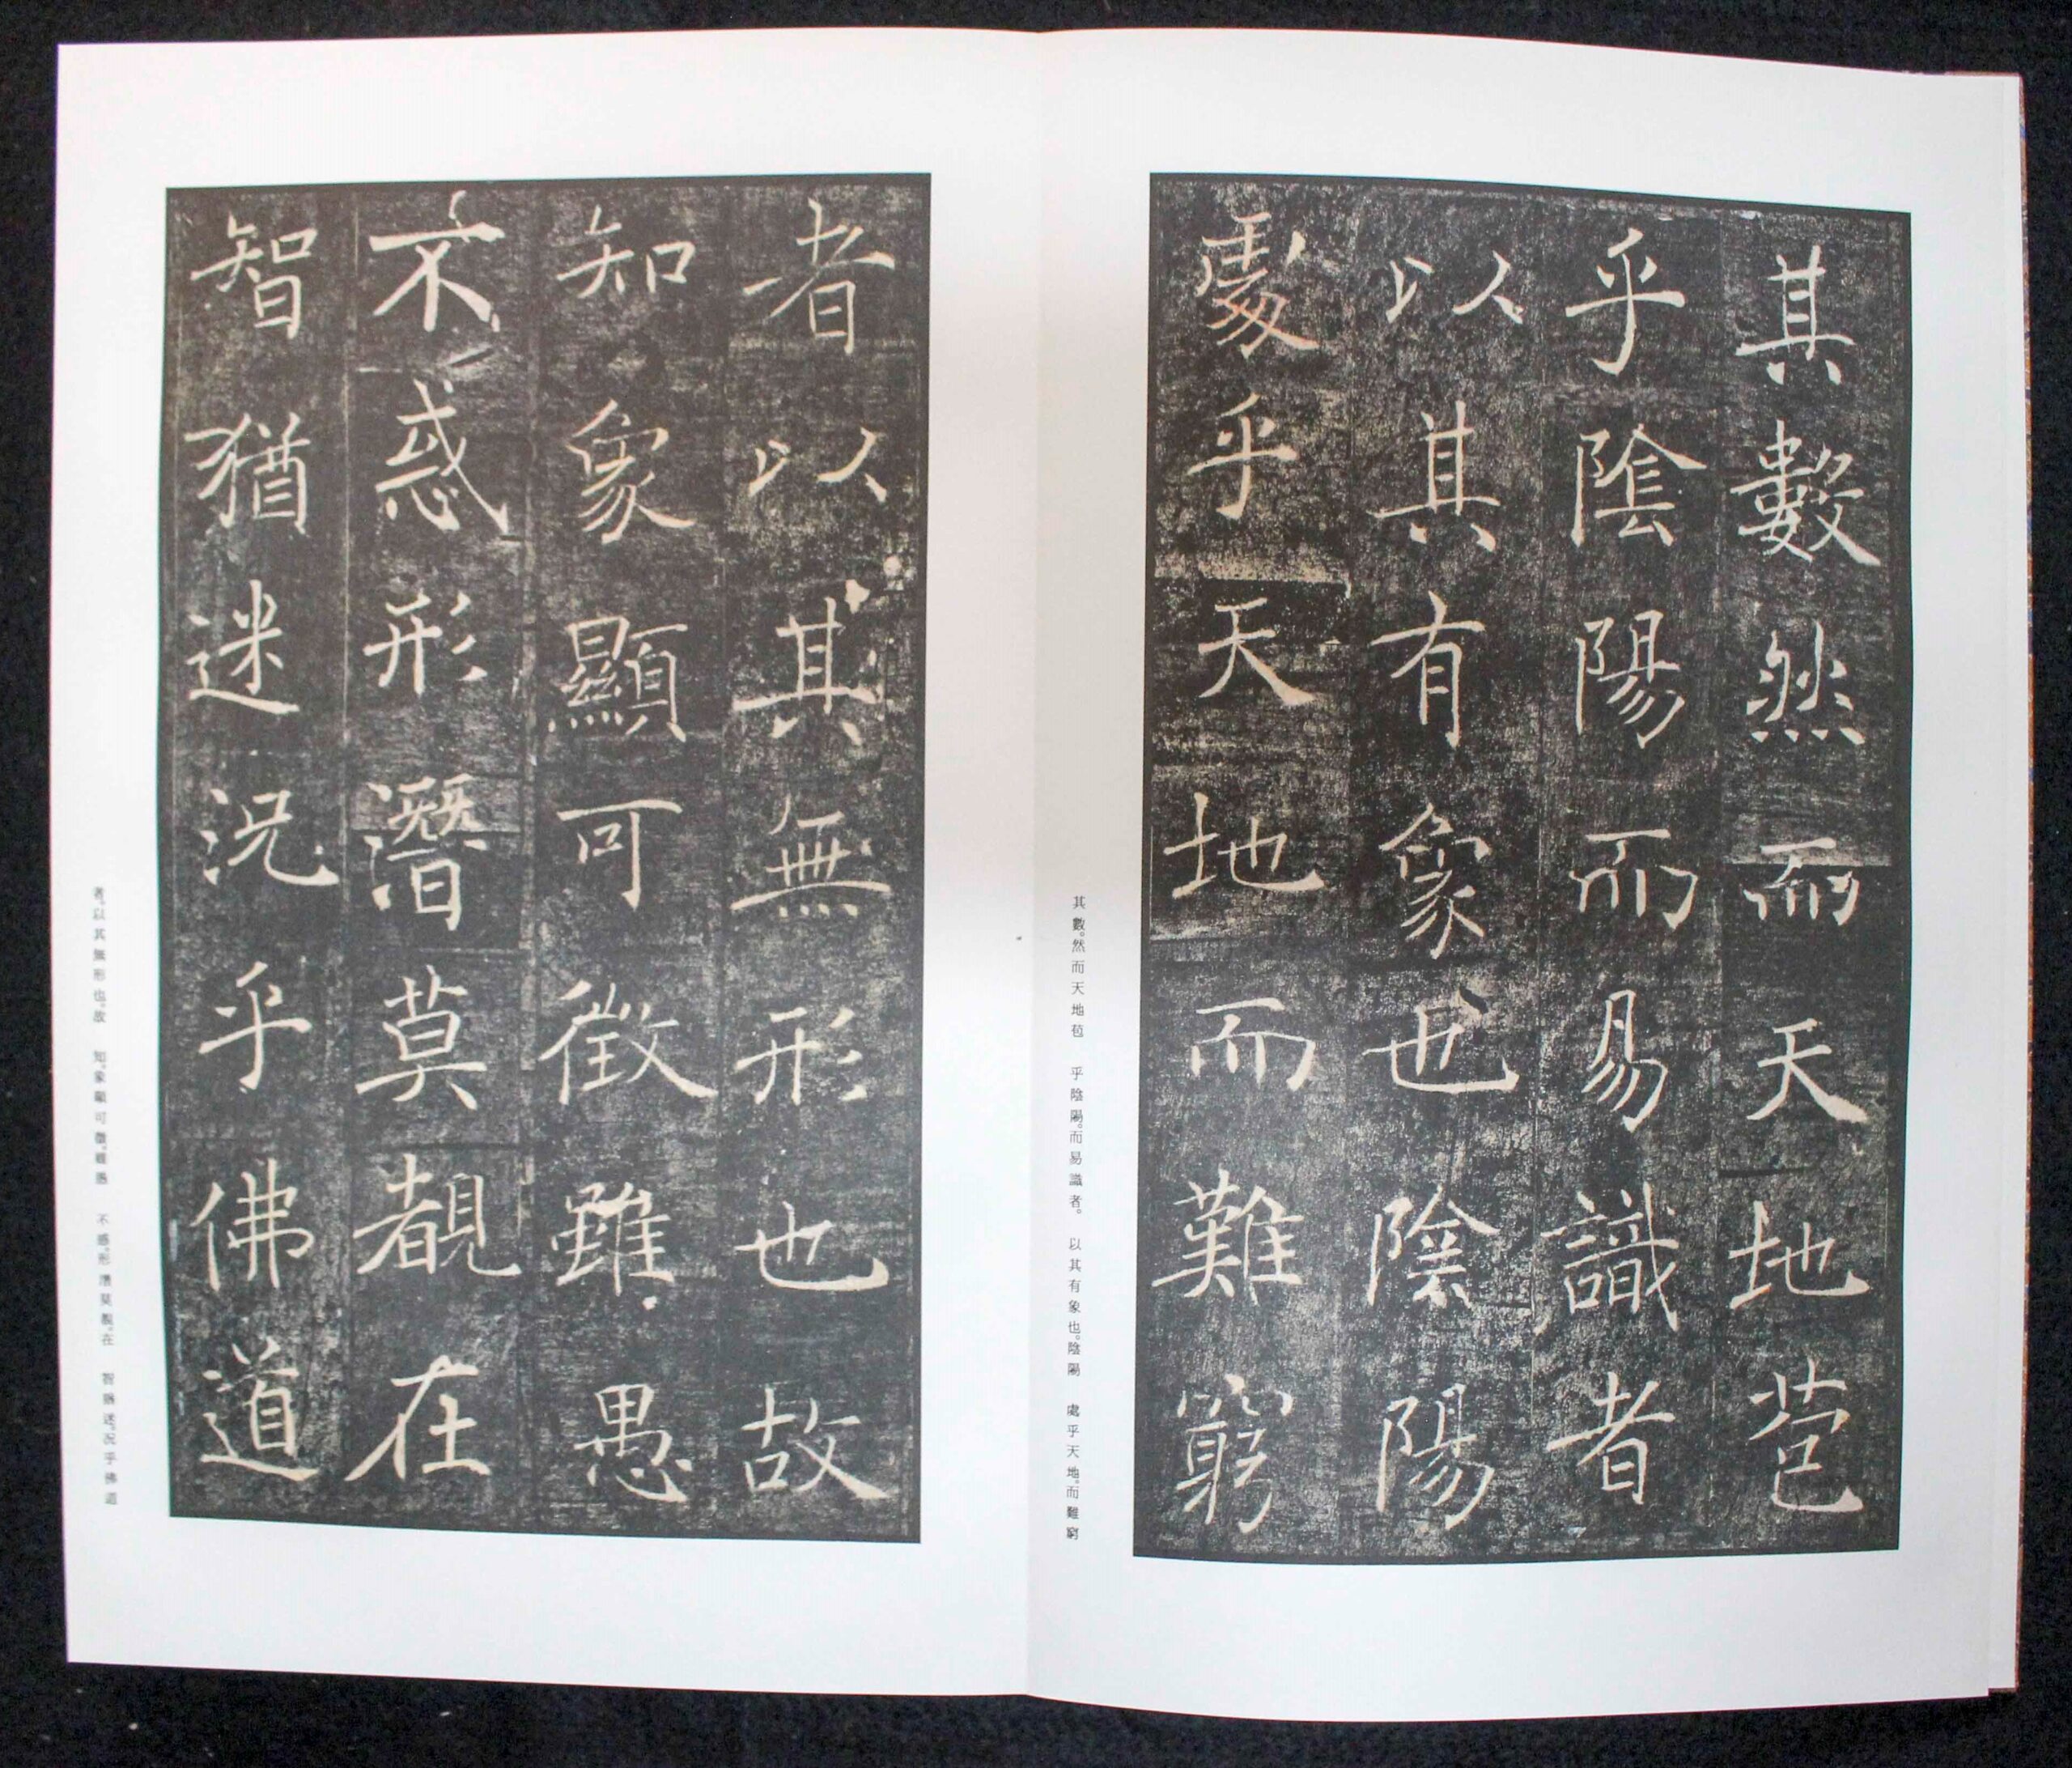 其數然而天地苞
乎陰陽而易識者
以其有象也陰陽
處乎天地而難窮
其數。然而天地苞　乎陰陽。而易識者。　以其有象也。陰陽　處乎天地。而難窮
者以其無形也故
知象顯可徵雖愚
不惑形潛莫覩在
智猶迷況乎佛道
者。以其無形也。故　知。象顯可徵。雖愚　不惑。形潛莫覩。在　智猶迷。況乎佛道